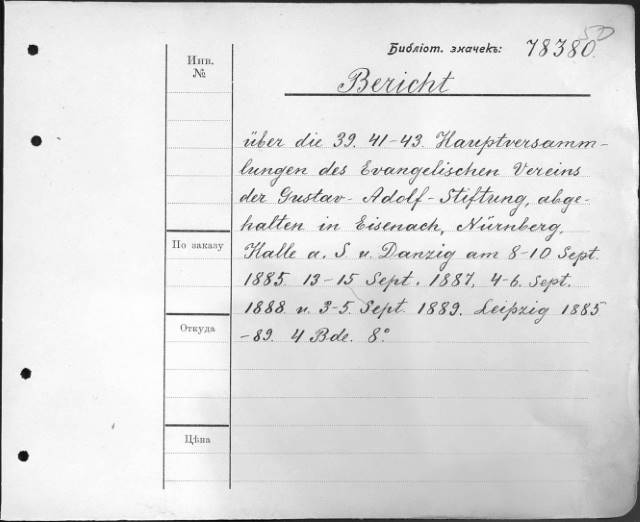 50
Библіот. значекъ: 78380.
Инв.
№
Bericht
über die 39. 41-43. Hauptversamm-
lungen des Evangelischen Vereins
der Gustav-Adolf-Stiftung, abge-
halten in Eisenach, Nürnberg,
По заказу
Halle a. S. u. Danzig am 8-10 Sept.
1885. 13-15 Sept. 1887, 4-6. Sept.
1888 u. 3-5. Sept. 1889. Leipzig 1885
Откуда
-89. 4 Bde. 8°.
Цѣна